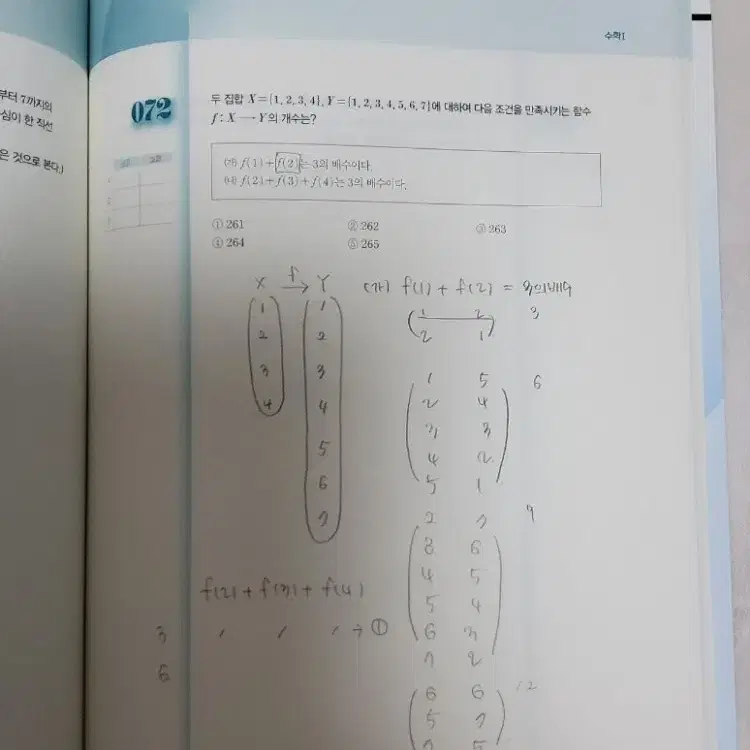 수학 I
부터 7까지의
심이 한 직선
은 것으로 본다.)
072
두 집합 X={1, 2, 3, 4}, Y={1, 2, 3, 4, 5, 6, 7}에 대하여 다음 조건을 만족시키는 함수
f : X → Y의 개수는?
(가) f(1)+f(2)는 3의 배수이다.
(나) f(2)+f(3)+f(4)는 3의 배수이다.
① 261 ② 262 ③ 263
④ 264 ⑤ 265
X f → Y
1 1
2 2
3 3
4 4
5
6
7
(가) f(1) + f(2) = 3의 배수
1 2 3
2 1
1 5 6
2 4
3 3
4 2
5 1
2 7 9
3 6
4 5
5 4
6 3
7 2
6 6 12
5 7
7 5
f(2) + f(3) + f(4)
3 1 1 1 → ①
6